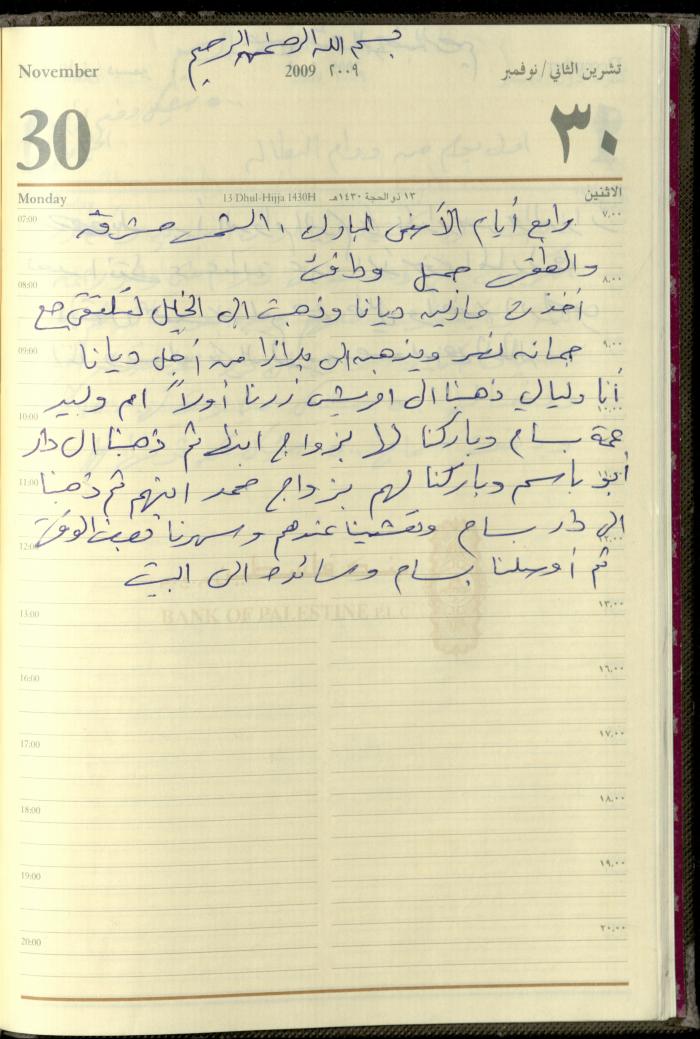 بسم الله الرحمن الرحيم
November 2009 ٢٠٠٩ تشرين الثاني / نوفمبر
30 ٣٠
Monday 13 Dhul-Hijja 1430H ١٣ ذو الحجة ١٤٣٠هـ الاثنين
07:00 ٧.٠٠
رابع أيام الأضحى المبارك ، الشمس مشرقة
والطقس جميل ودافئ
08:00 ٨.٠٠
أخذت مازن ديانا وذهبت الى الخليل لتلتقي مع
09:00 ٩.٠٠
جمانه نصر ويذهبن الى بلازا من أجل ديانا
أنا وليالي ذهبنا الى امريش زرنا أولاً ام وليد
10:00
عمة بسام وباركنا لها بزواج ابنها ثم ذهبنا الى دار
11:00
أبو باسم وباركنا لهم بزواج محمد ابنهم ثم ذهبنا
الى دار بسام وتعشينا عندهم وسهرنا نفس الوقت
12:00
ثم أوصلنا بسام وسائده الى البيت
BANK OF PALESTINE P.L.C
13:00 ١٣.٠٠
16:00 ١٦.٠٠
17:00 ١٧.٠٠
18:00 ١٨.٠٠
19:00 ١٩.٠٠
20:00 ٢٠.٠٠